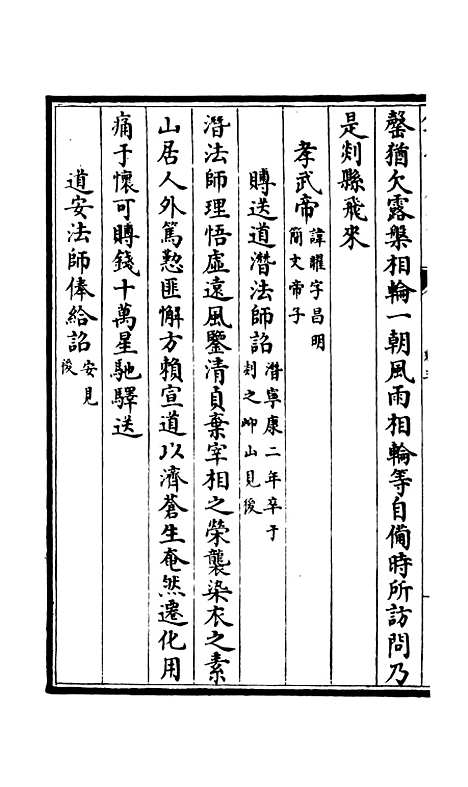 罄猶欠露槃相輪一朝風雨相輪等自備時所訪問乃
是剡縣飛來
孝武帝諱曜字昌明簡文帝子
賻送道潛法師詔潛寧康二年卒于剡之岇山見後
潛法師理悟虛遠風鑒清貞棄宰相之榮襲染衣之素
山居人外篤懃匪懈方賴宣道以濟蒼生奄然遷化用
痛于懷可賻錢十萬星馳驛送
道安法師俸給詔安見後